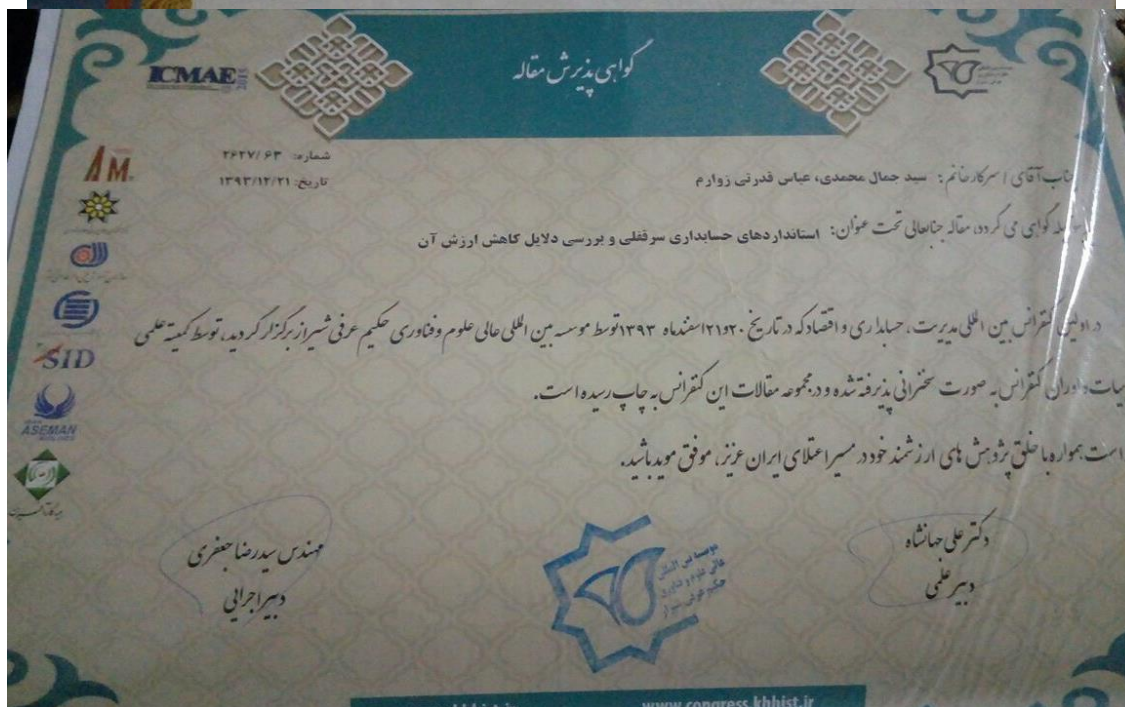 گواهی پذیرش مقاله
ICMAE 2015
شماره: ۲۶۲۷/۶۳
تاریخ: ۱۳۹۳/۱۲/۲۱
جناب آقای / سرکارخانم: سید جمال محمدی، عباس قدرتی زوارم
گواهی می گردد، مقاله جنابعالی تحت عنوان: استانداردهای حسابداری سرقفلی و بررسی دلایل کاهش ارزش آن
در اولین کنفرانس بین المللی مدیریت، حسابداری و اقتصاد که در تاریخ ۲۰و۲۱اسفندماه ۱۳۹۳توسط موسسه بین المللی عالی علوم وفناوری حکیم عرفی شیراز برگزار گردید، توسط کمیته علمی
داوران کنفرانس به صورت سخنرانی پذیرفته شده و در مجموعه مقالات این کنفرانس به چاپ رسیده است.
است همواره با خلق پژوهش های ارزشمند خود در مسیر اعتلای ایران عزیز، موفق موید باشید.
دکتر علی جهانشاه
دبیر علمی
مهندس سیدرضا جعفری
دبیر اجرایی
موسسه بین المللی
عالی علوم و فناوری
حکیم عرفی شیراز
SID
ASEMAN
www.congress.khhist.ir